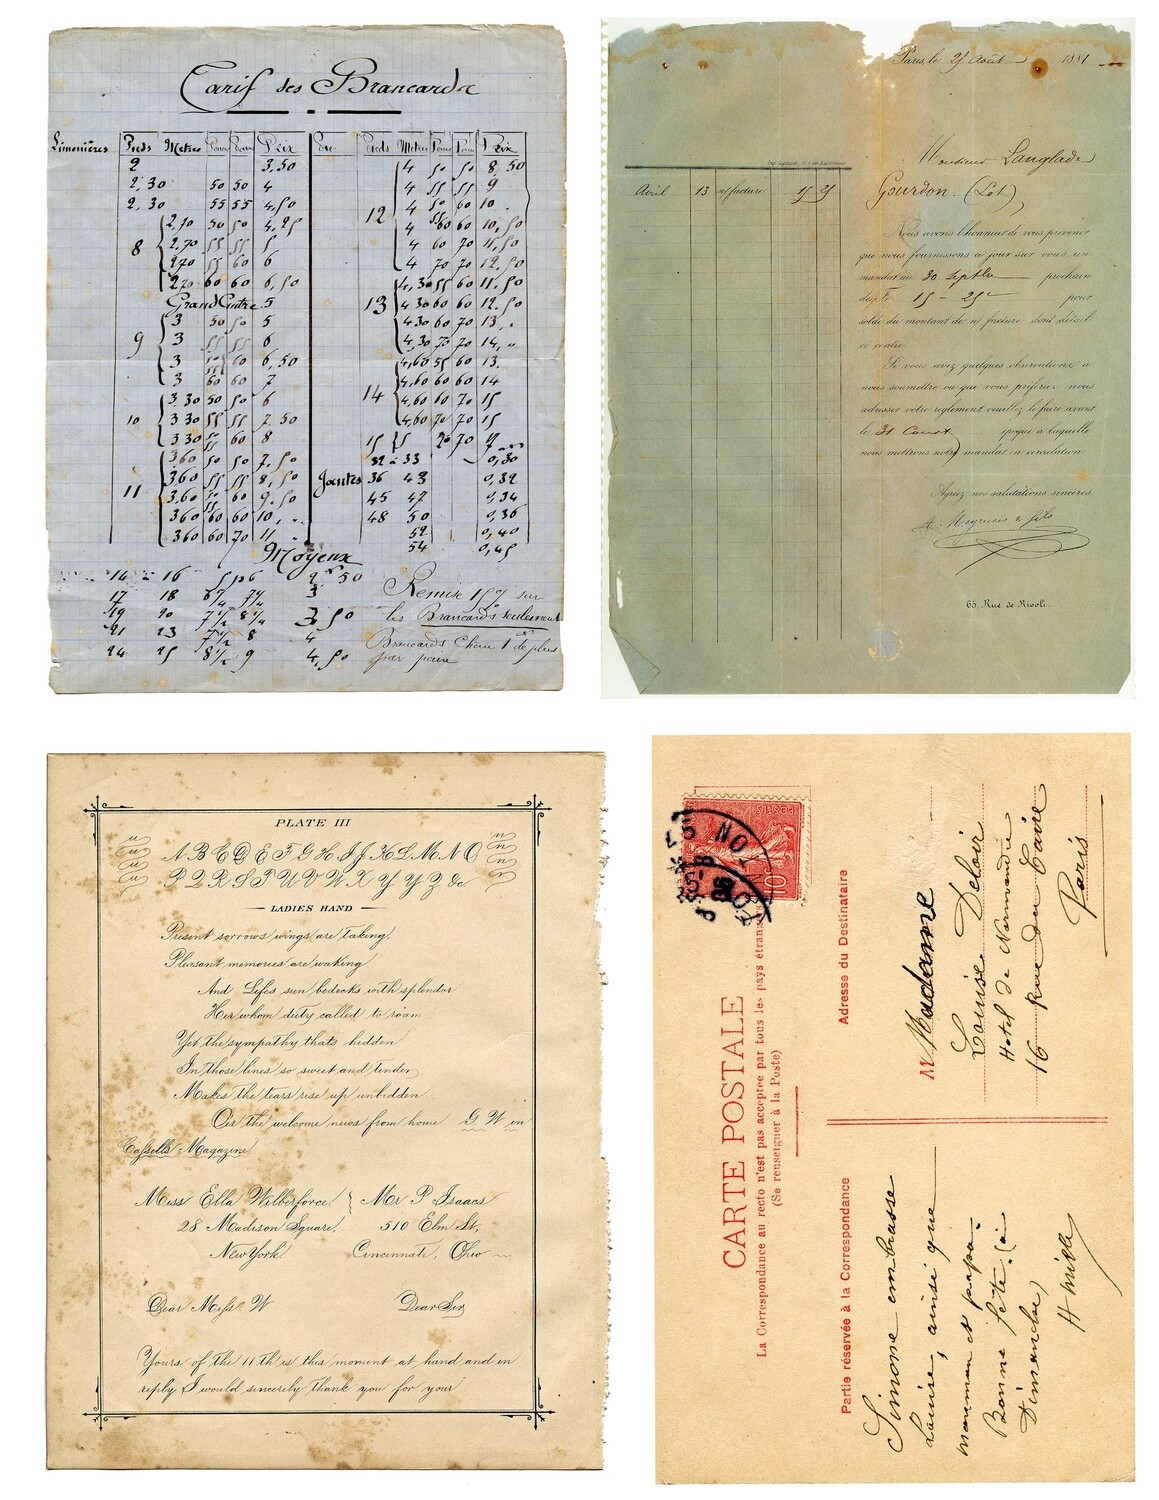 Tarif des Brancards
Limonières Pieds Metres Prix Pieds Metres Prix
2 3,50
2,30 50 50 4
2,30 55 55 4,50
8
2,70 50 50 4,25
2,70 55 55 5
2,70 55 60 6
2,70 60 60 6,50
Grand Cintre 5
9
3 50 50 5
3 55 55 6
3 55 60 6,50
3 60 60 7
10
3 30 50 50 6
3 30 55 55 7,50
3 30 55 60 8
11
3,60 50 50 7,50
3,60 55 55 8,50
3,60 55 60 9,50
3,60 60 60 10
3,60 60 70 11
12
4 50 50 8,50
4 55 55 9
4 50 60 10
4 60 60 10,50
4 60 70 11,50
4 70 70 12,50
13
4,30 55 60 11,50
4,30 60 60 12,50
4,30 60 70 13
4,30 70 70 14
14
4,60 55 60 13
4,60 60 60 14
4,60 60 70 15
4,60 70 70 15
15
Jantes
32 à 33 0,30
36 43 0,32
45 47 0,34
48 50 0,36
52 0,40
54 0,45
Moyeux
14 à 16 5 p 6 2 50
17 18 3
19 20 7 1/2 8 1/4 3 50
21 23 7 1/2 8 4
24 25 8 1/2 9 4,50
Remise 15 % sur
les Brancards seulement
Brancards Chêne 1 de plus
par paire
Paris, le 25 Août 1881
Monsieur Langlade
Gourdon (Lot)
Avril 13 n/facture 15 25
Nous avons l'honneur de vous prévenir
que nous fournissons ce jour sur vous, un
mandat au 30 Septbre prochain
de f. 15 - 25 c pour
solde du montant de n/ facture dont détail
ci contre.
Si vous avez quelques observations à
nous soumettre ou que vous préfériez nous
adresser votre règlement veuillez le faire avant
le 31 Court époque à laquelle
nous mettrons notre mandat en circulation.
Agréez nos salutations sincères
65, Rue de Rivoli.
PLATE III
A B C D E F G H I J K L M N O
P Q R S T U V W X Y Y Z &c.
LADIES HAND
Present sorrows wings are taking,
Pleasant memories are waking
And Lifes sun bedecks with splendor
Her whom duty called to roam
Yet the sympathy thats hidden
In those lines so sweet and tender
Makes the tears rise up unbidden
O'er the welcome news from home G. W. in
Cassells Magazine
Miss Ella Wilberforce. Mr P. Isaacs
28 Madison Square, 510 Elm St.,
New York Cincinnati, Ohio
Dear Miss W Dear Sir,
Yours of the 11th is this moment at hand and in
reply I would sincerely thank you for your
POSTES
10c
CARTE POSTALE
La Correspondance au recto n'est pas acceptée par tous les pays étran
(Se renseigner à la Poste)
Partie réservée à la Correspondance
Simone embrasse
Louise, ainsi que
maman et papa.
Bonne fête. (à
Dimanche)
Adresse du Destinataire
M Madame
Louise Deloir
Hotel de Normandie
16 Rue du Caire
Paris